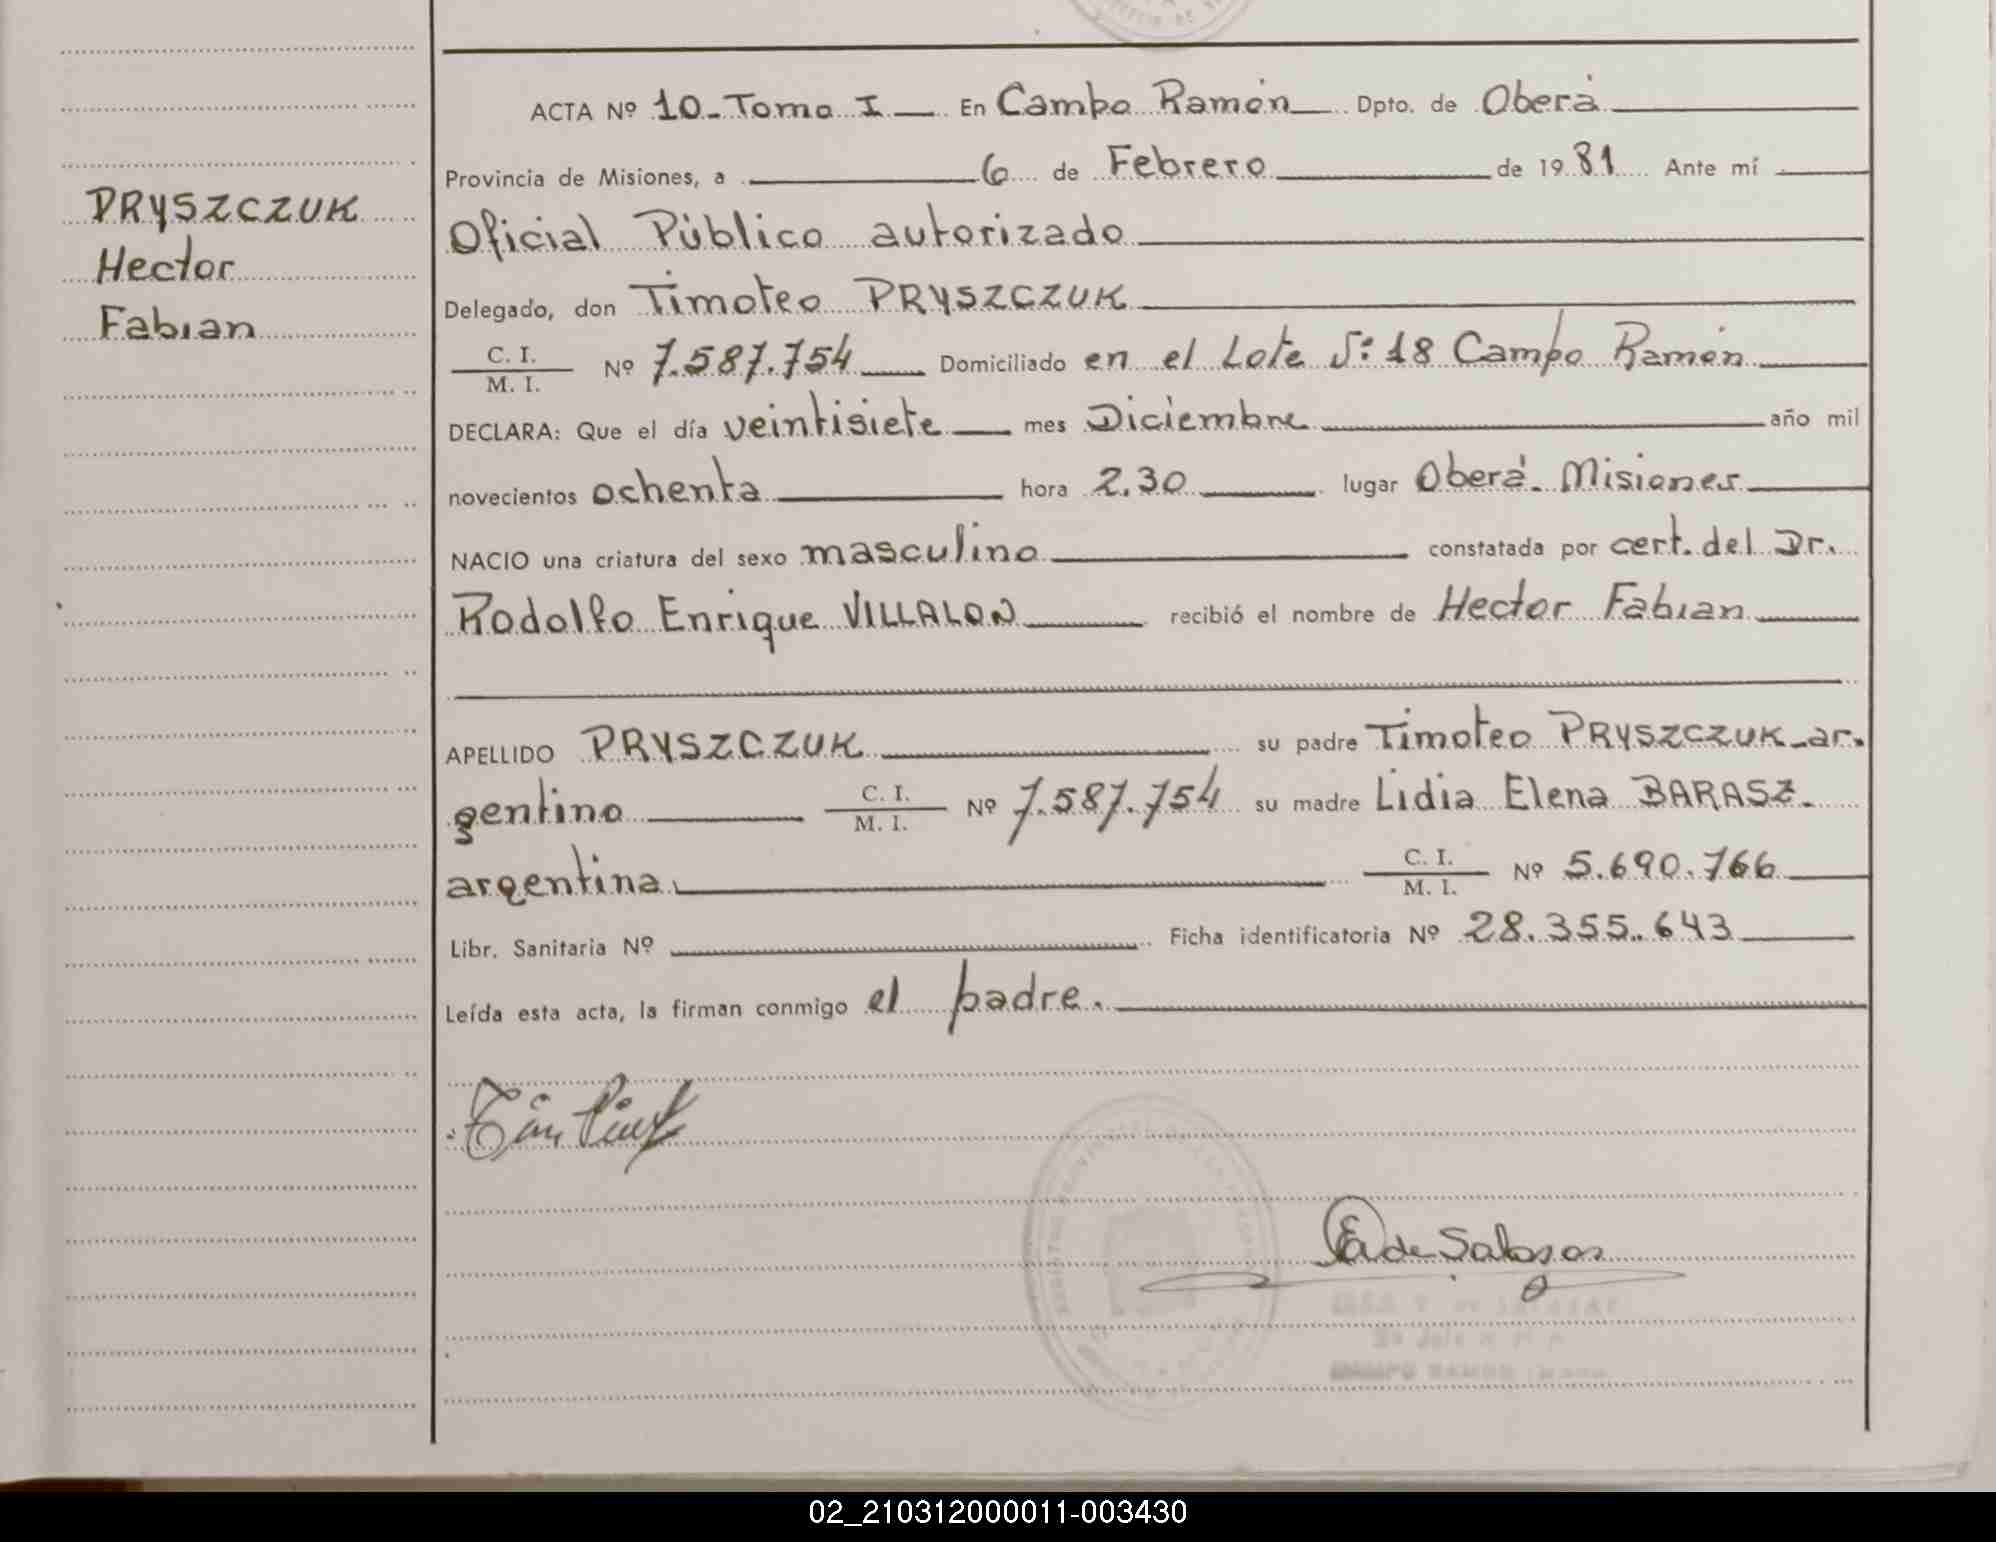 ACTA Nº 10 - Tomo I En Campo Ramón Dpto. de Oberá
Provincia de Misiones, a 6 de Febrero de 1981 Ante mí
Oficial Público autorizado
Delegado, don Timoteo PRYSZCZUK
C. I. / M. I. Nº 7.587.754 Domiciliado en el Lote S: 18 Campo Ramón
DECLARA: Que el día veintisiete mes Diciembre año mil
novecientos ochenta hora 2.30 lugar Oberá. Misiones
NACIO una criatura del sexo masculino constatada por cert. del Dr.
Rodolfo Enrique VILLALON recibió el nombre de Hector Fabian
APELLIDO PRYSZCZUK su padre Timoteo PRYSZCZUK - ar.
gentino C. I. / M. I. Nº 7.587.754 su madre Lidia Elena BARASZ.
argentina C. I. / M. I. Nº 5.690.766
Libr. Sanitaria Nº Ficha identificatoria Nº 28.355.643
Leída esta acta, la firman conmigo el padre.
PRYSZCZUK
Hector
Fabian
02_210312000011-003430